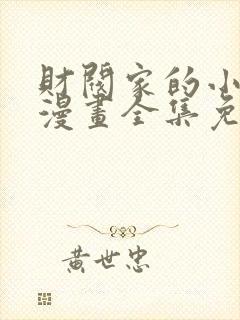 財閥家的小
漫畫全集免
黃世忠